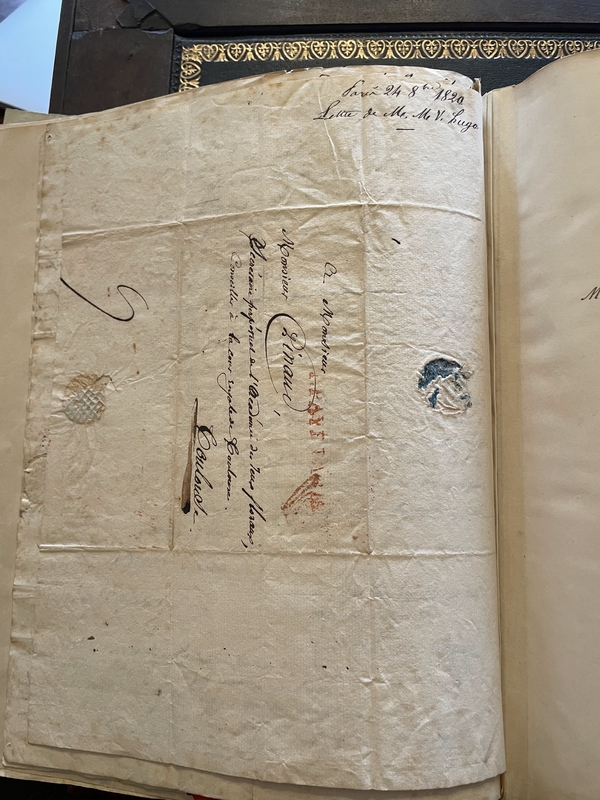 Paris 24 8bre 1820
Lettre de Mr. M V. Hugo
A Monsieur
Monsieur Pinaud,
Secrétaire perpétuel de l'Académie des Jeux floraux,
Conseiller à la cour royale de Toulouse.
Toulouse.
M